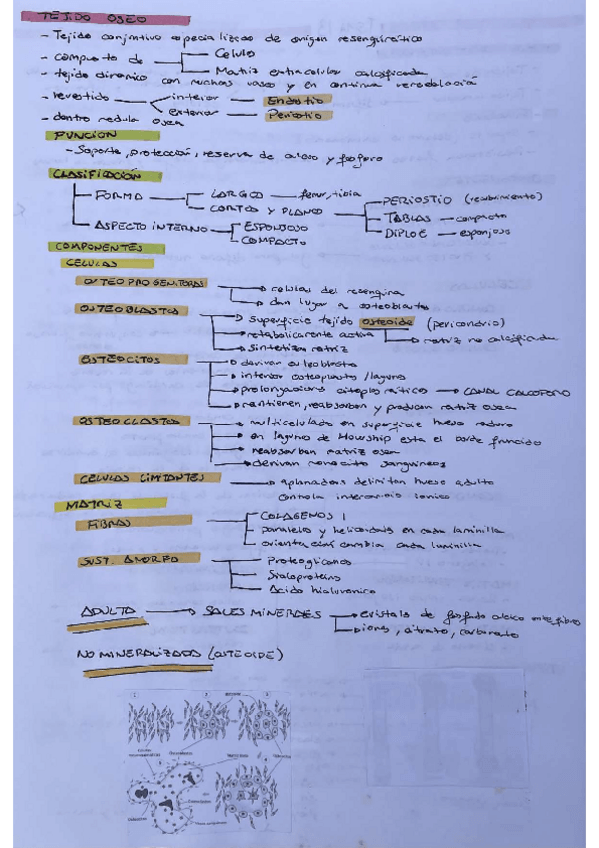 TEJIDO OSEO
- Tejido conjuntivo especializado de origen mesenquimático
- compuesto de Celulas
Matriz extracelular calcificada
- tejido dinamico con muchos vasos y en continua remodelación
- revestido interior Endostio
exterior Periostio
- dentro medula osea
FUNCION
- Soporte, protección, reserva de calcio y fosforo
CLASIFICACIÓN
FORMA LARGOS femur, tibia
CORTOS Y PLANOS PERIOSTIO (recubrimiento)
TABLAS compacto
DIPLOE esponjoso
ASPECTO INTERNO ESPONJOSO
COMPACTO
COMPONENTES
CELULAS
OSTEOPROGENITORAS celulas del mesenquima
dan lugar a osteoblastos
OSTEOBLASTOS superficie tejido osteoide (pericondrio)
metabolicamente activa matriz no calcificada
sintetiza matriz
OSTEOCITOS derivan osteoblasto
interior osteoplastos / laguna
prolongaciones citoplasmáticas CANAL CALCOFORO
mantienen, reabsorben y producen matriz osea
OSTEOCLASTOS multicelulado en superficie hueso maduro
en laguna de Howship esta el borde fruncido
reabsorben matriz osea
derivan monocito sanguineos
CELULAS LIMITANTES aplanadas delimitan hueso adulto
controla intercambio ionico
MATRIZ
FIBRAS COLAGENOS I
paralelos y helicoidales en cada laminilla
orientación cambia cada laminilla
SUST. AMORFA Proteoglicanos
Sialoproteina
Acido hialuronico
ADULTO SALES MINERALES cristals de fosfato calcico entre fibras
iones, citrato, carbonato
NO MINERALIZADA (OSTEOIDE)